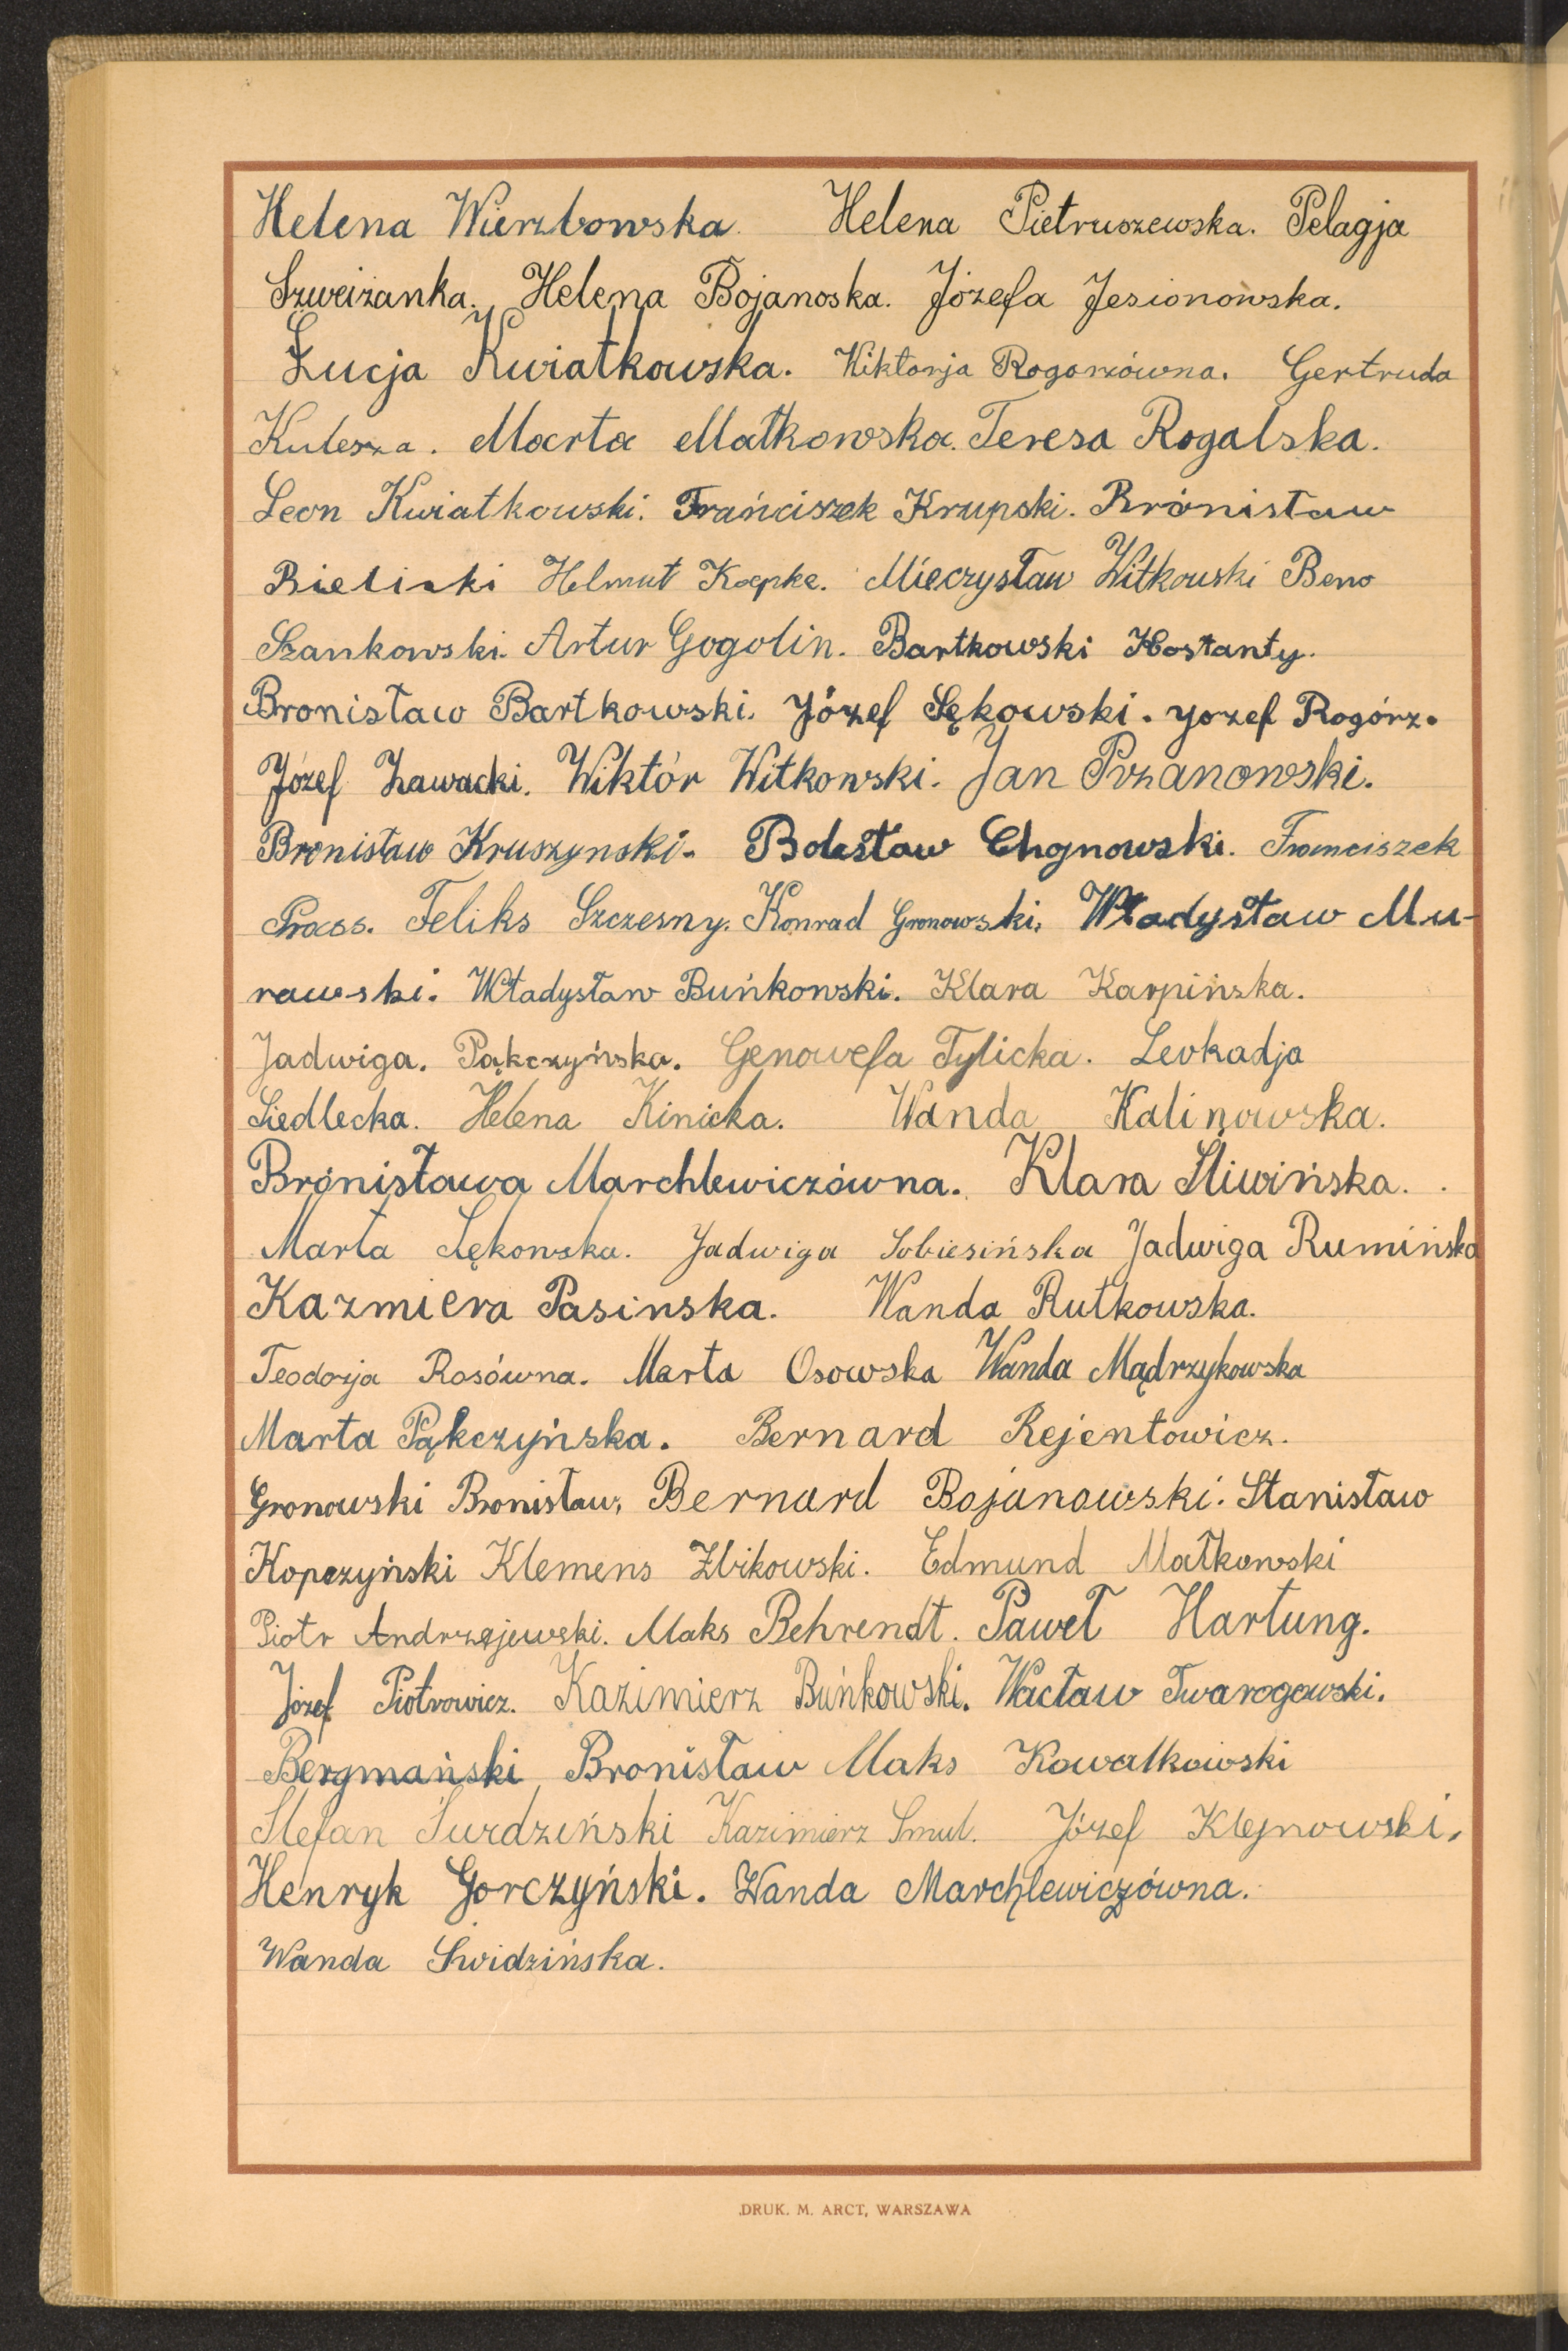 Helena Wierzbowska. Helena Pietruszewska. Pelagja
Szweiżanka. Helena Bojanoska. Józefa Jesionowska.
Łucja Kwiatkowska. Wiktorja Rogorzówna. Gertruda
Kulesza. Marta Małkowska. Teresa Rogalska.
Leon Kwiatkowski. Frańciszek Krupski. Brónisław
Bieliski Helmut Koepke. Mieczysław Witkowski Beno
Szankowski. Artur Gogolin. Bartkowski Kostanty.
Bronisław Bartkowski. Józef Sękowski. Jozef Rogórz.
Józef Zawacki. Wiktór Witkowski. Jan Przanowski.
Bronisław Kruszynski. Bolesław Chojnowski. Franciszek
Prass. Feliks Szczesny. Konrad Gronowski. Władysław Mu-
rawski. Władysław Buńkowski. Klara Karpińska.
Jadwiga. Pąkczyńska. Genowefa Tylicka. Leokadja
Siedlecka. Helena Kinicka. Wanda Kalinowska.
Brónisława Marchlewiczówna. Klara Śliwińska.
Marta Sękowska. Jadwiga Sobiesińska Jadwiga Rumińska
Kazmiera Pasinska. Wanda Rutkowska.
Teodorja Rosówna. Marta Osowska Wanda Mądrzykowska
Marta Pąkczyńska. Bernard Rejentowicz.
Gronowski Bronisław, Bernard Bojanowski. Stanisław
Kopczyński Klemens Żbikowski. Edmund Małkowski
Piotr Andrzejewski. Maks Behrendt. Paweł Hartung.
Józef Piotrowicz. Kazimierz Buńkowski. Wacław Twarogowski.
Bergmański Bronisław Maks Kowalkowski
Stefan Surdziński Kazimierz Smul. Józef Klejnowski.
Henryk Gorczyński. Wanda Marchlewiczówna.
Wanda Swidzińska.
DRUK. M. ARCT, WARSZAWA